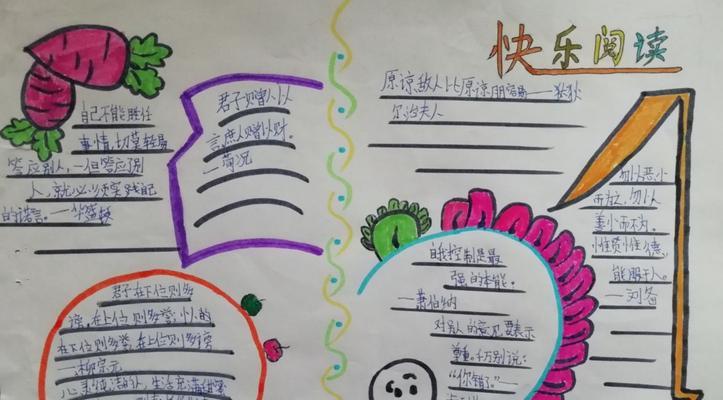 快乐阅读
自己不能胜任
事情,切莫轻易
答应别人,一但答应了别
人,就必须实践自己
的诺言。——华盛顿
君子赠人以
言,庶人赠人以财。
—荀况
君子在下位则多
谤,在上位则多誉;小人的
在下位则多誉,在上位则多谤
—柳宗元
心美纯洁让,生活充满甜蜜
原谅敌人比原谅朋友易——狄狄
尔治夫人
自我控制是最
强的本能。
—萧伯纳
对别人的意见要表示
尊重。千万别说:
“你错了。”—
勿以恶小
而为之,勿以
善小而不为。
惟贤惟德,
能服于人。
—刘备